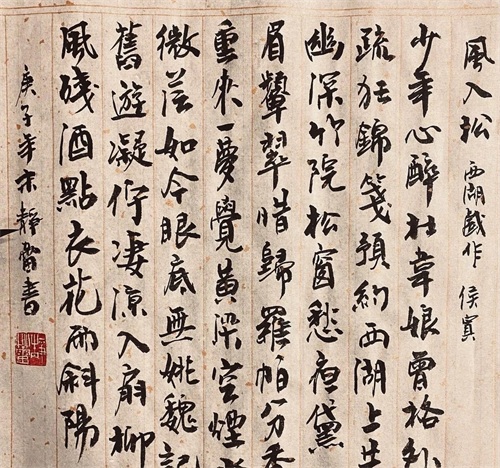 風入松 西湖戲作 侯寘
少年心醉杜韋娘曾格外
疏狂錦箋預約西湖上共
幽深竹院松窗愁夜黛
眉顰翠惜歸羅帕分香
重來一夢覺黃粱空煙
微茫如今眼底無姚魏記
舊遊凝佇凄涼入扇柳
風殘酒點衣花雨斜陽
庚子年末靜蕾書